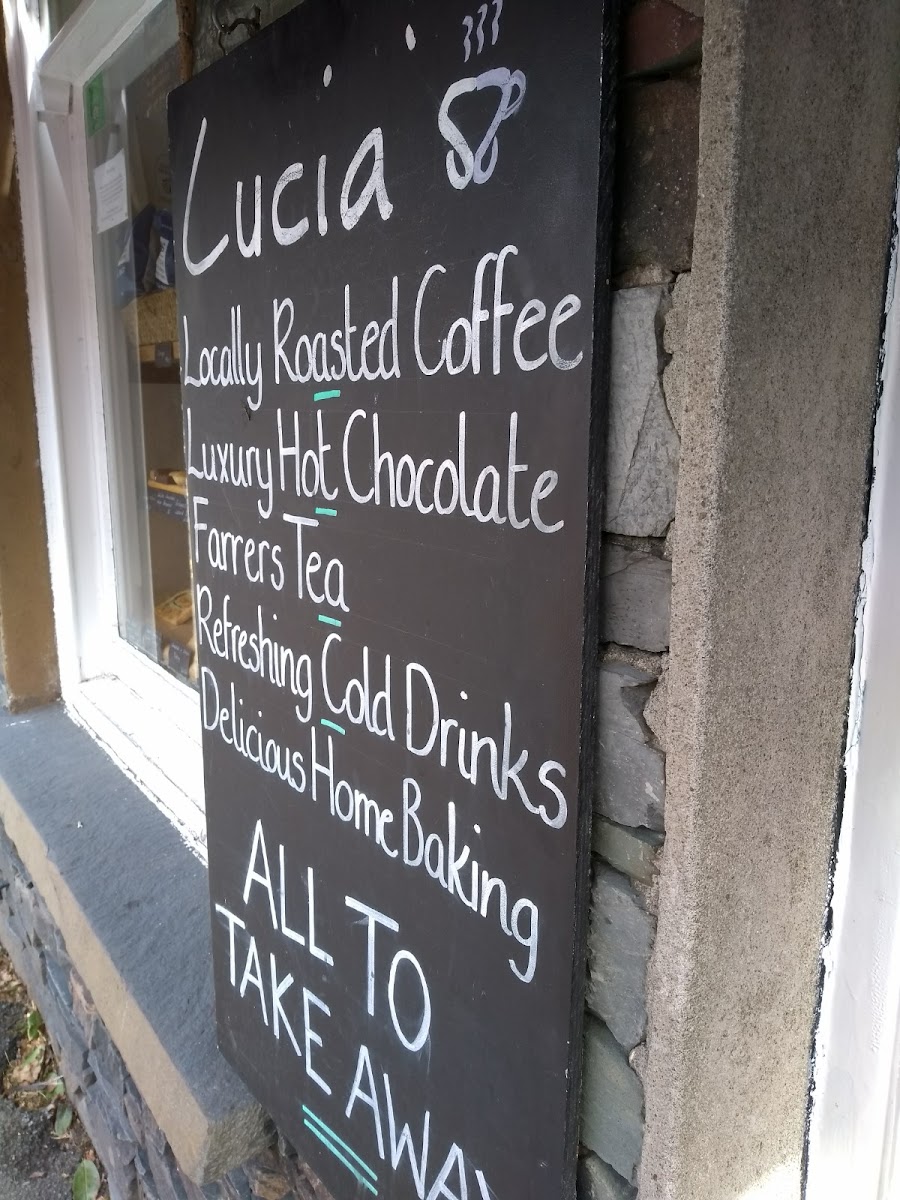 Lucia
Locally Roasted Coffee
Luxury Hot Chocolate
Farrers Tea
Refreshing Cold Drinks
Delicious Home Baking
ALL TO
TAKE AWAY